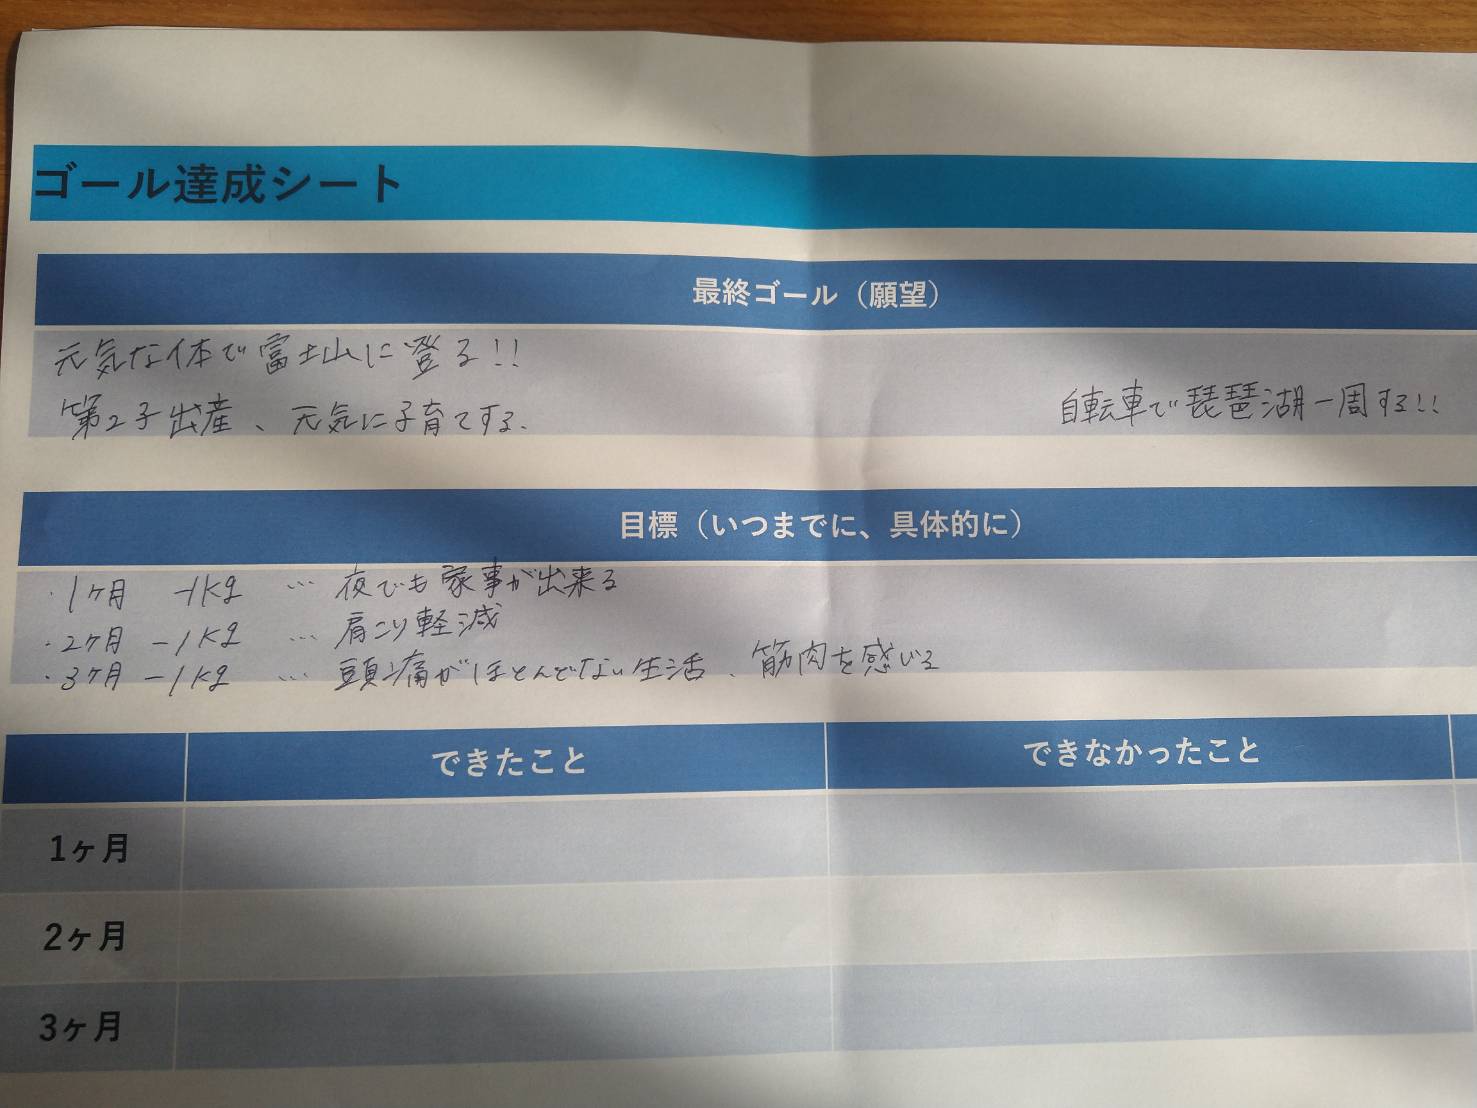 ゴール達成シート
最終ゴール（願望）
元気な体で富士山に登る!!
自転車で琵琶湖一周する!!
第2子出産、元気に子育てする.
目標（いつまでに、具体的に）
・1ヶ月 -1kg … 夜でも家事が出来る
・2ヶ月 -1kg … 肩こり軽減
・3ヶ月 -1kg … 頭痛がほとんどない生活、筋肉を感じる
できたこと
できなかったこと
1ヶ月
2ヶ月
3ヶ月